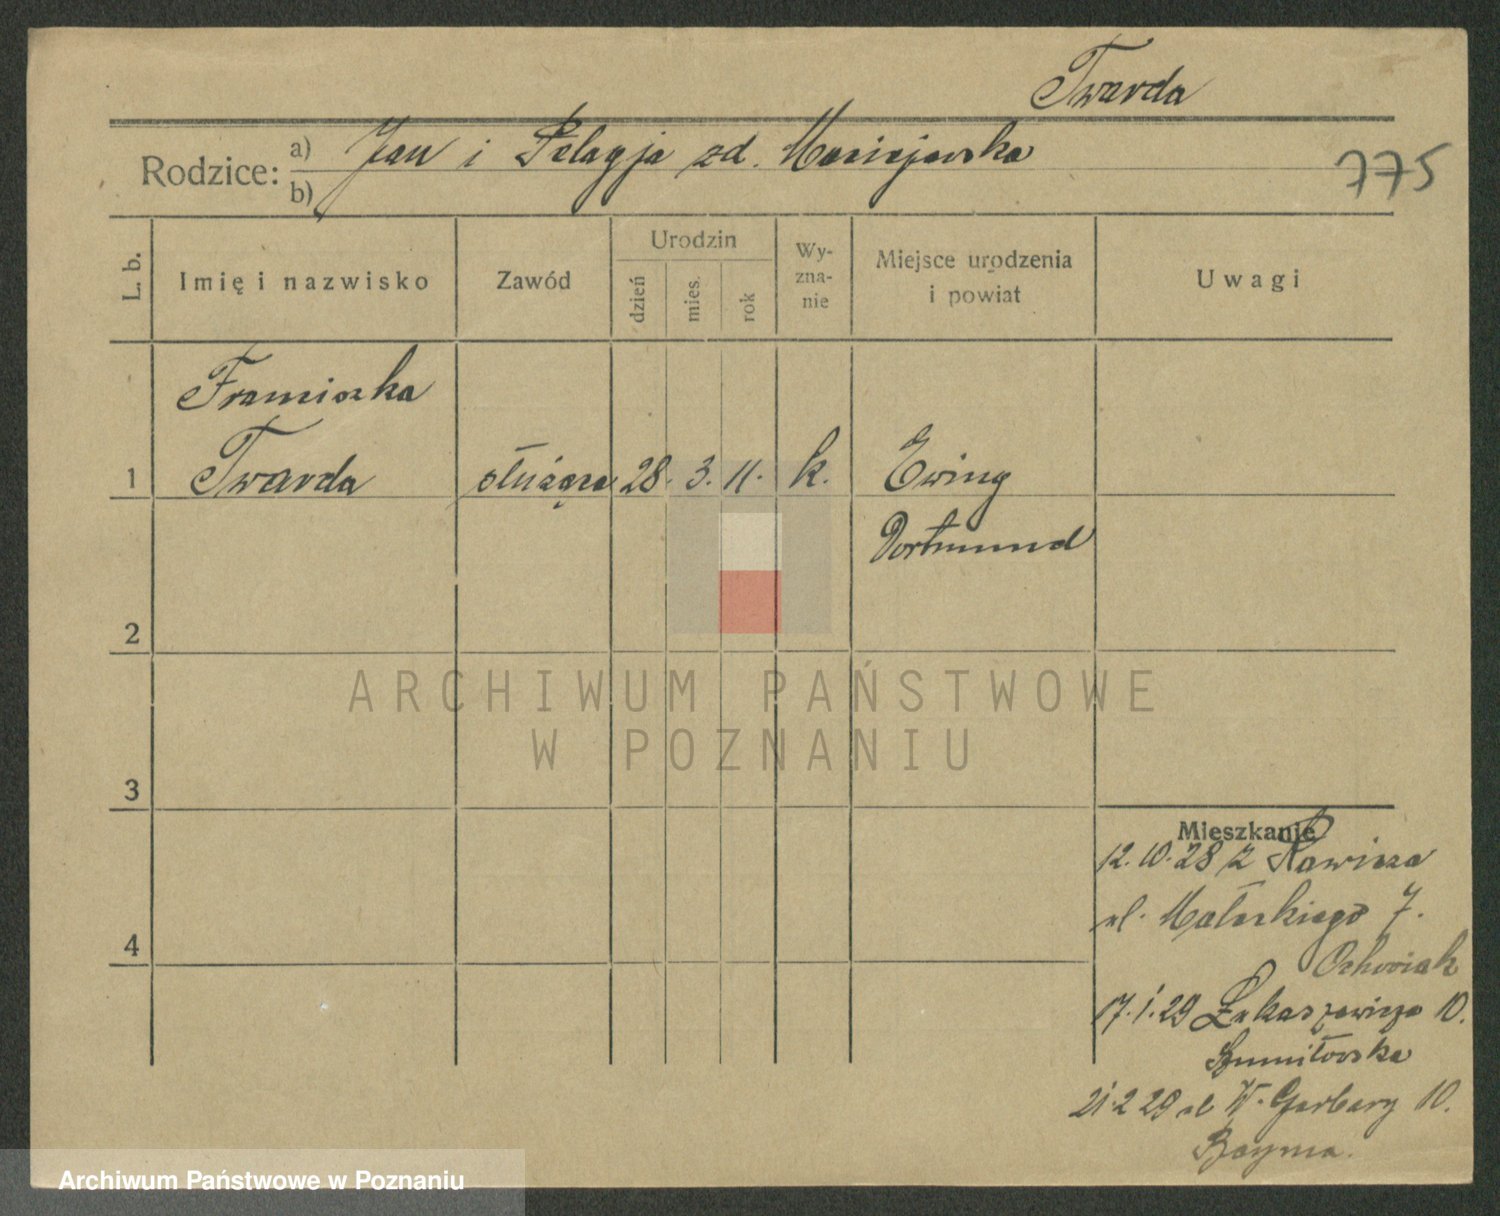 Twarda
Rodzice: a) Jan i Pelagja zd. Maciejewska
b)
775
L. b.
Imię i nazwisko
Zawód
Urodzin
dzień
mies.
rok
Wy-
zna-
nie
Miejsce urodzenia
i powiat
Uwagi
Franciszka
1 Twarda służąca 28. 3. 11. k. Ewing
Dortmund
2
3
4
ARCHIWUM PAŃSTWOWE
W POZNANIU
Mieszkanie
12.10.28 z Rawicza
ul. Małeckiego 7.
17.1.29 Łukaszewicza 10.
21.2 29 ul W. Garbary 10.
Archiwum Państwowe w Poznaniu